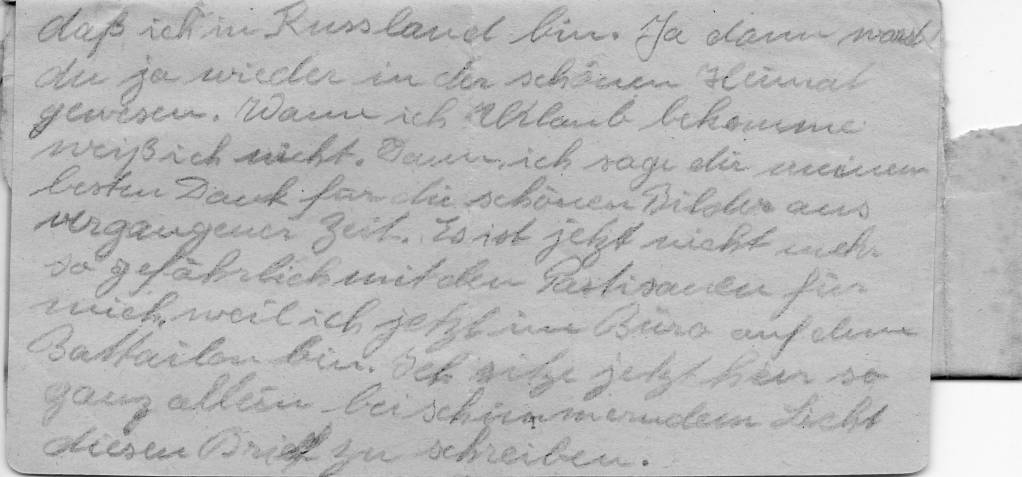 daß ich in Russland bin. Ja dann warst
du ja wieder in der schönen Heimat
gewesen. Wann ich Urlaub bekomme
weiß ich nicht. Dann ich sage dir meinen
besten Dank für die schönen Bilder aus
vergangener Zeit. Es ist jetzt nicht mehr
so gefährlich mit den Partisanen für
mich, weil ich jetzt im Büro auf dem
Battailon bin. Ich sitze jetzt hier so
ganz allein bei schimmerndem Licht
diesen Brief zu schreiben.